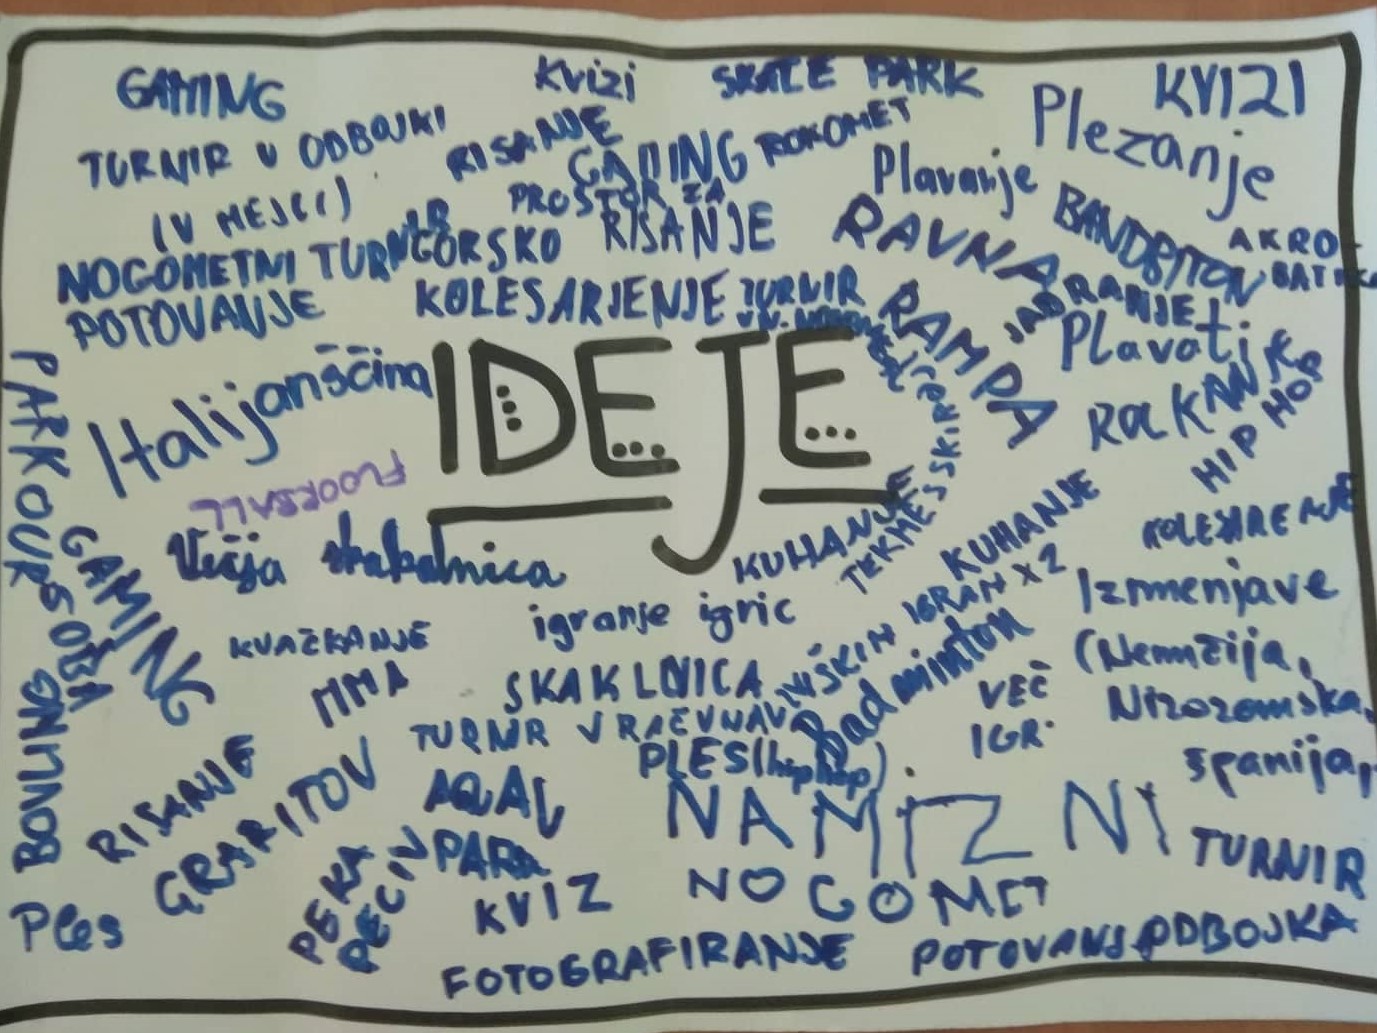 GAMING
Kvizi
SKATE PARK
KVIZI
TURNIR V ODBOJKI
RISANJE
GAMING
ROKOMET
Plezanje
(V MEJCI)
PROSTOR ZA
RISANJE
Plavanje
RAVNA
RAMPA
BANDBITON
AKRO-
NOGOMETNI TURNIR
GORSKO
KOLESARJENJE
POTOVANJE
TURNIR
JADRANJE
Plavati
PARKOUR SOBA
Italijanščina
IDEJE
HIP HOP
FLOORBALL
Večja
GAMING
KUHANJE
KUHANJE
igranje igric
IGRAN X2
Izmenjave
(Nemčija,
Nizozemska,
Španija,
KVAČKANJE
MMA
SKAKLNICA
Badminton
VEČ
IGR.
TURNIR V
PLES (hip hop)
BOVLING
RISANJE
GRAFITOV
PARK
NAMIZNI
NOGOMET
TURNIR
ODBOJKA
Ples
PEKA
PECIV
KVIZ
FOTOGRAFIRANJE